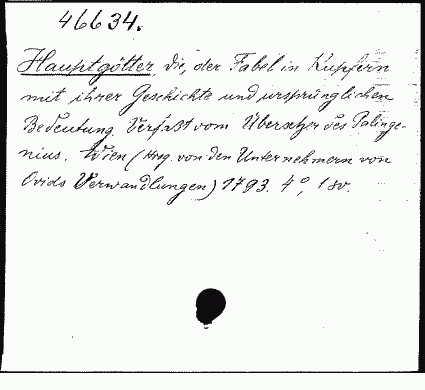 46634.
Hauptgötter, die, der Fabel in Kupfern
mit ihrer Geschichte und ursprünglichen
Bedeutung. Verfaßt vom Übersetzer des Palinge-
nius. Wien (Hrsg. von den Unternehmern von
Ovids Verwandlungen) 1793. 4°,